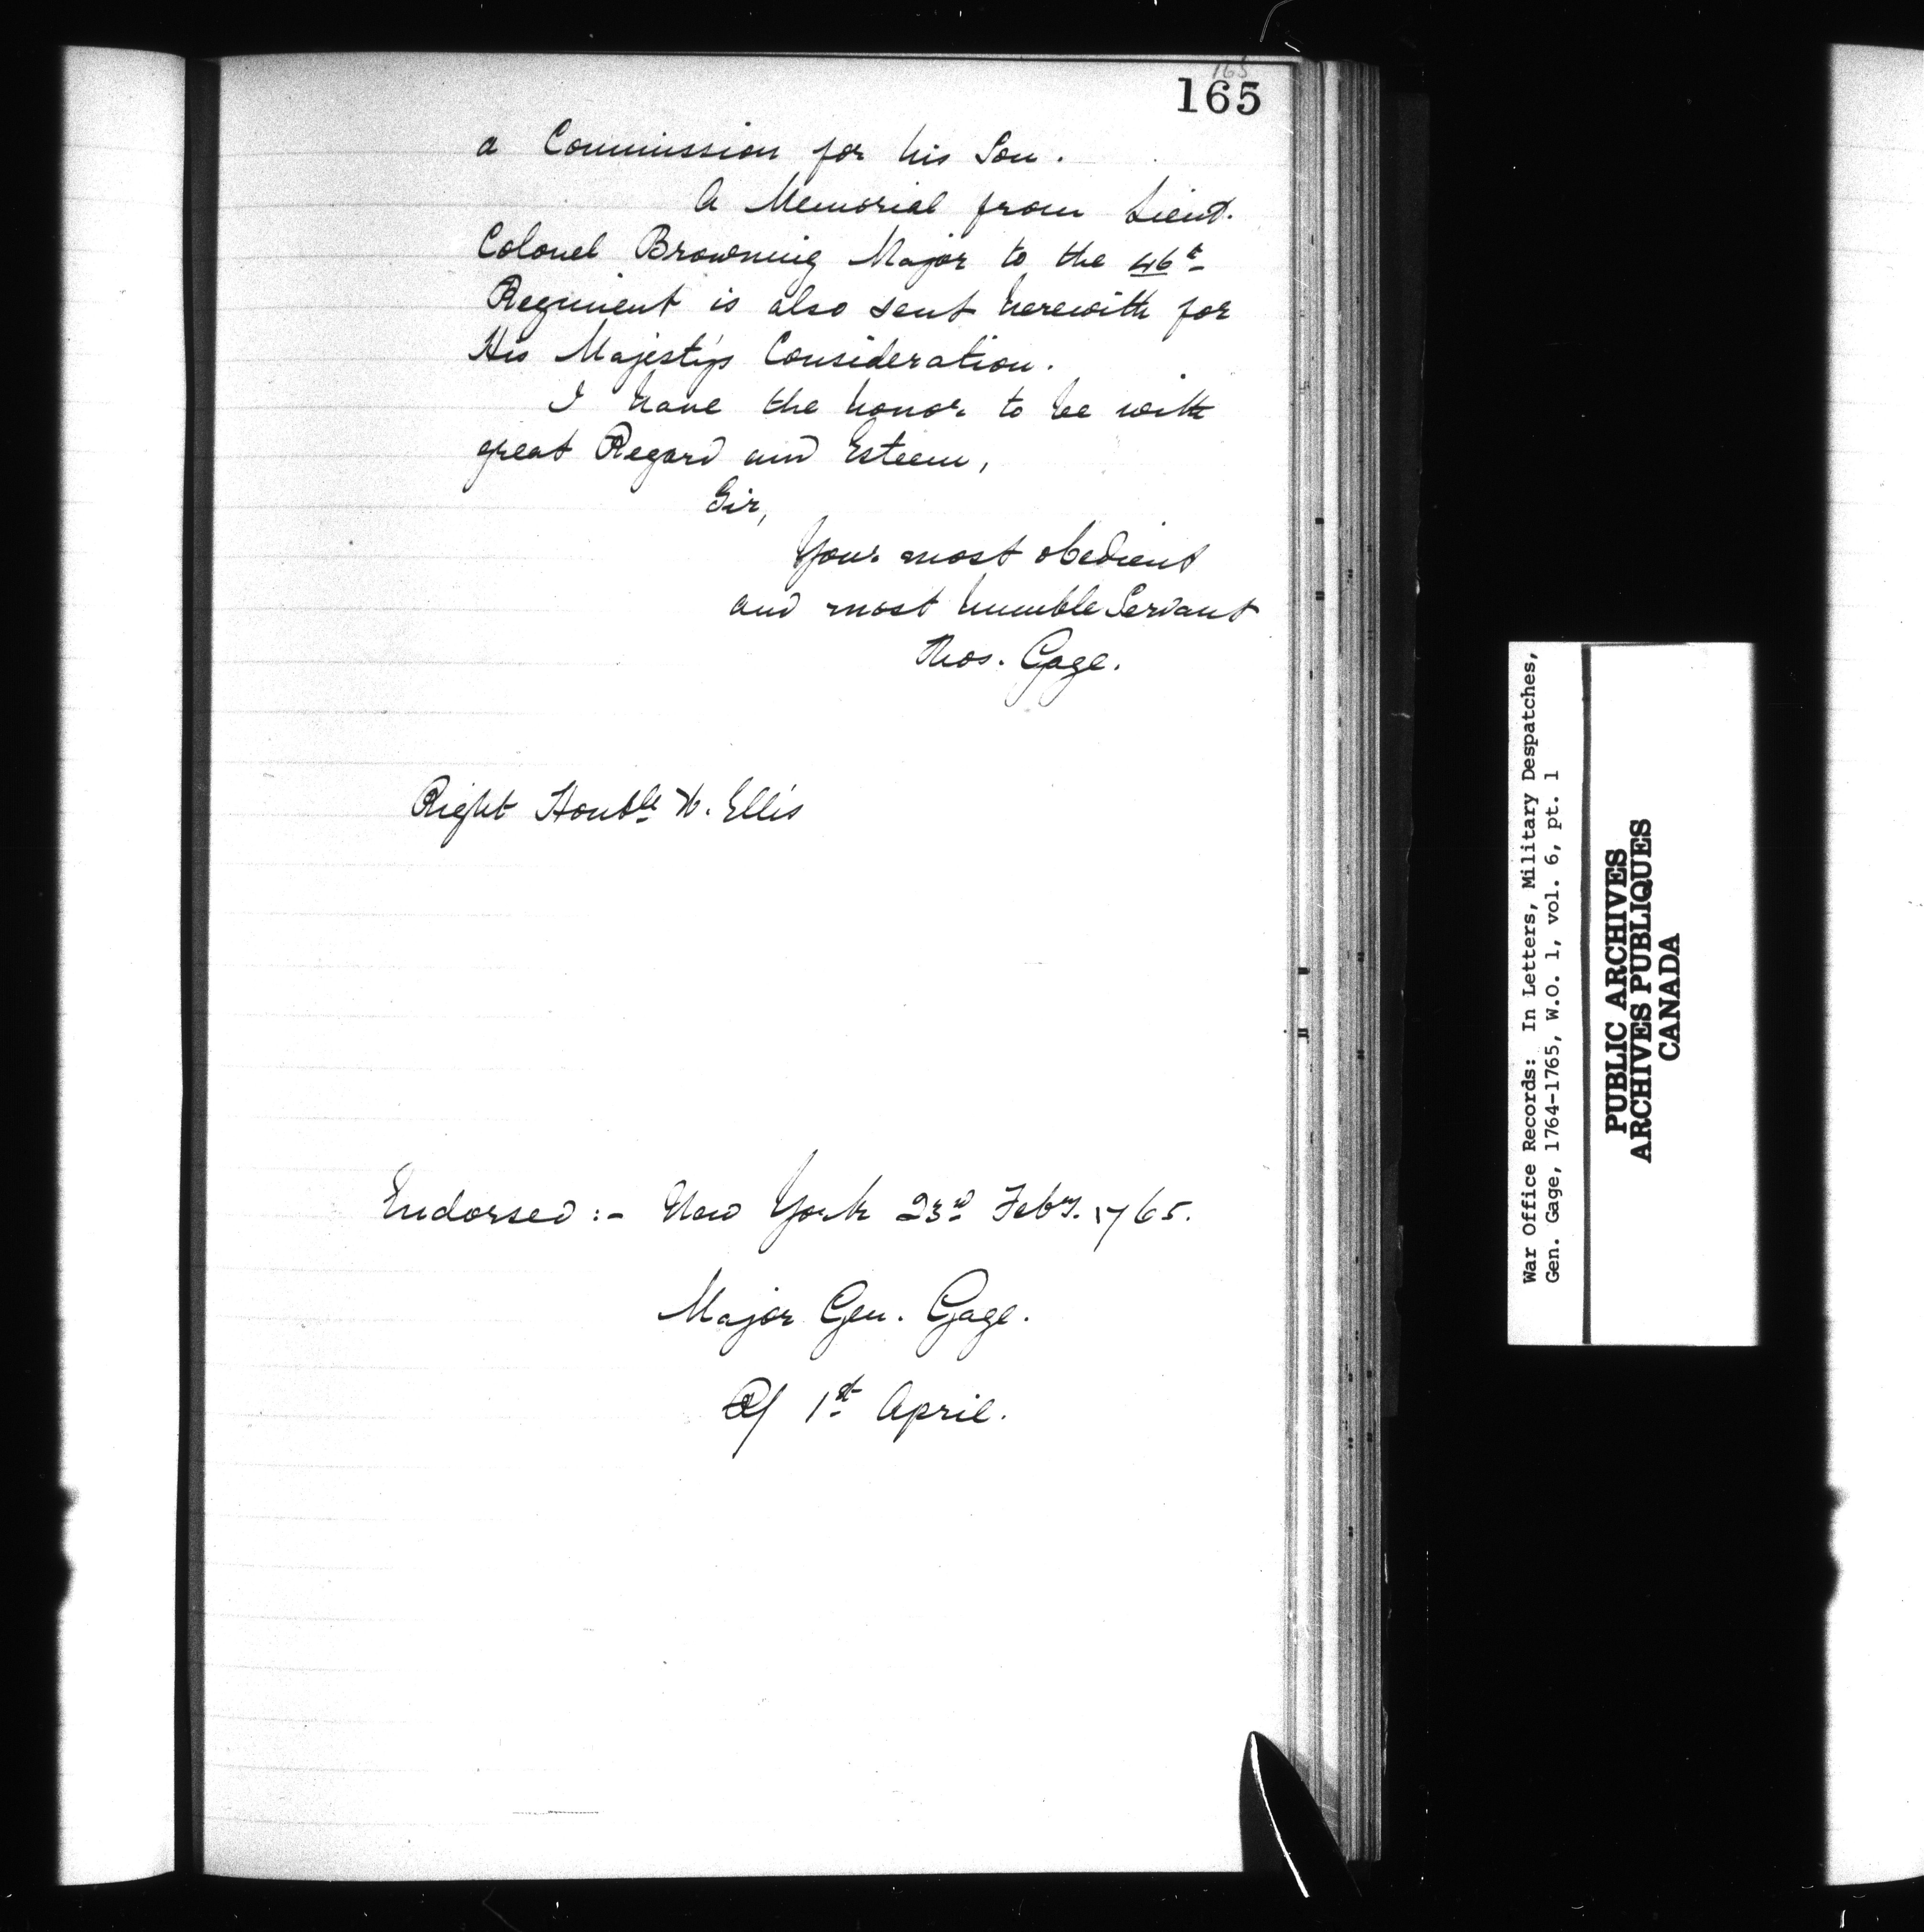 165
165
a Commission for his Son.
A Memorial from Lieut.
Colonel Browning Major to the 46th
Regiment is also sent herewith for
His Majesty's Consideration.
I have the honor to be with
great Regard and Esteem,
Sir,
Your most obedient
and most humble Servant
Thos. Gage.
Right Honble W. Ellis
Endorsed :- New York 23rd Feby. 1765.
Major Gen. Gage.
R/ 1st April.
War Office Records: In Letters, Military Despatches,
Gen. Gage, 1764-1765, W.O. 1, vol. 6, pt. 1
PUBLIC ARCHIVES
ARCHIVES PUBLIQUES
CANADA